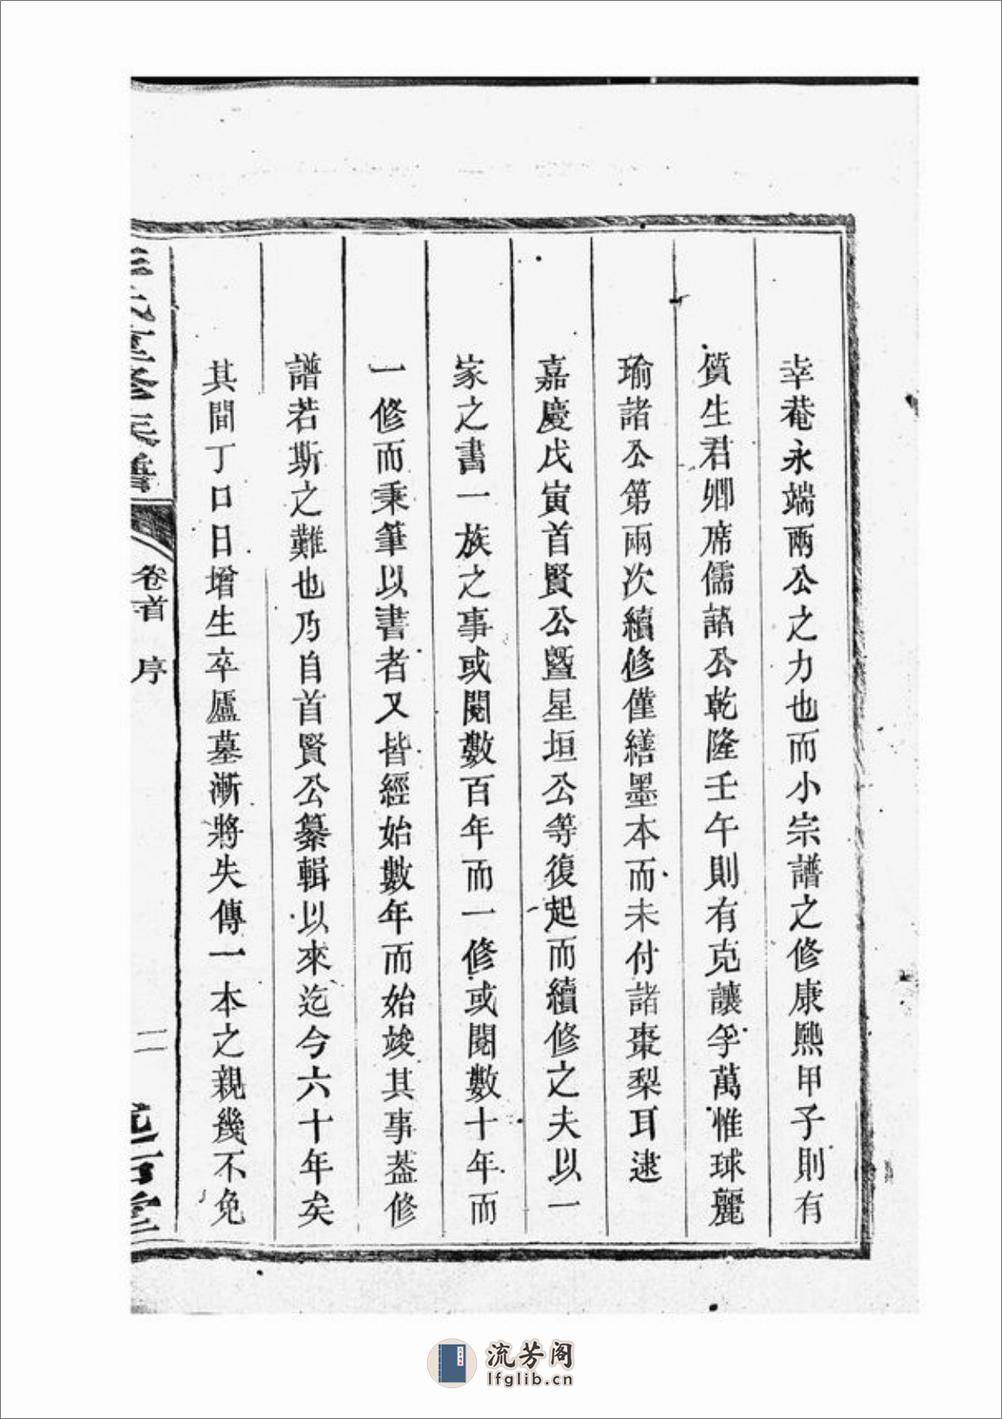 幸菴永端兩公之力也而小宗譜之修康熙甲子則有
質生君卿席儒諸公乾隆壬午則有克讓孚萬惟球麗
瑜諸公第兩次續修僅繕墨本而未付諸棗梨耳逮
嘉慶戊寅首賢公暨星垣公等復起而續修之夫以一
家之書一族之事或閱數百年而一修或閱數十年而
一修而秉筆以書者又皆經始數年而始竣其事蓋修
譜若斯之難也乃自首賢公纂輯以來迄今六十年矣
其間丁口日增生卒廬墓漸將失傳一本之親幾不免
氏 修 譜
卷首 序
二
堂
流芳阁
lfglib.cn